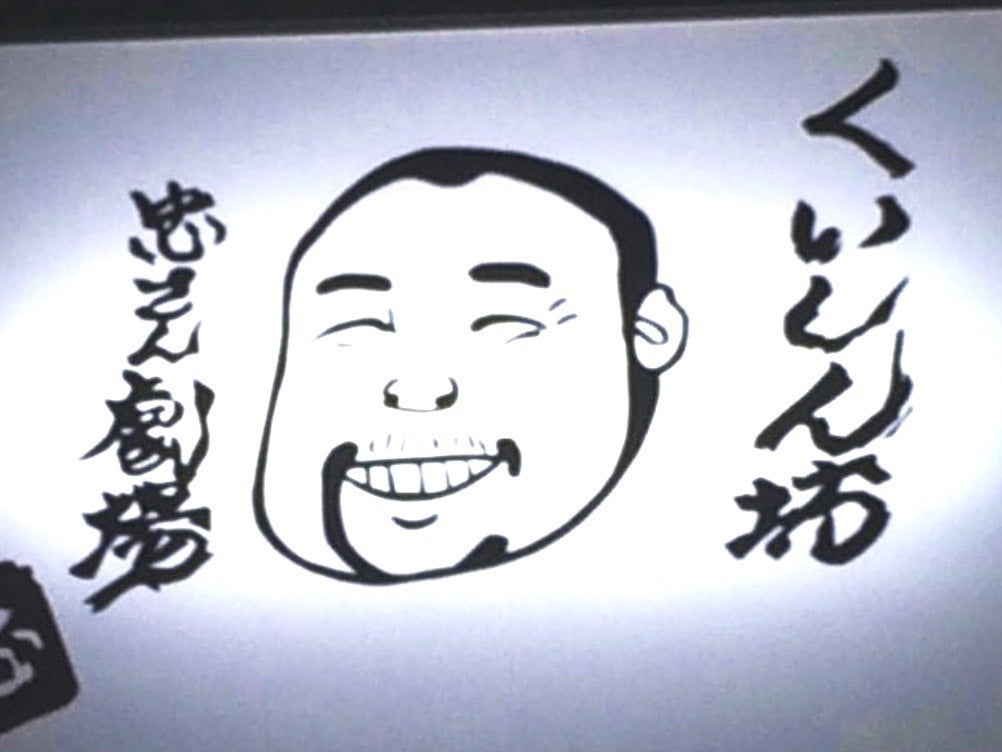 くいしん坊
忠さん劇場